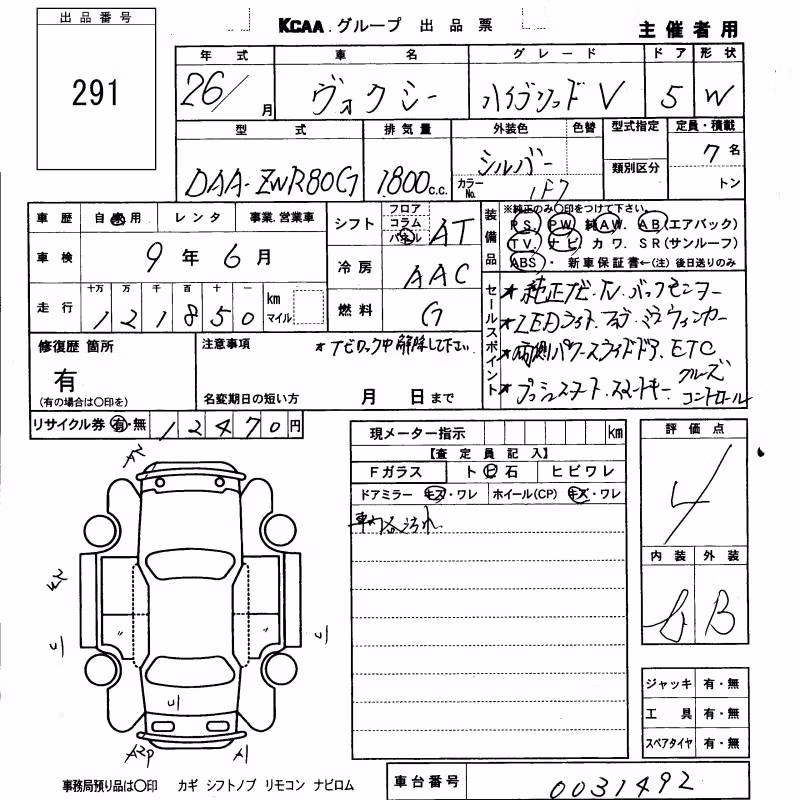 出品番号
291
KCAA.グループ 出品票
主催者用
年式 車名 グレード ドア 形状
26/ 月 ヴォクシー ハイブリッド V 5 W
型式 排気量 外装色 色替 型式指定 定員・積載
DAA-ZWR80G 1800 c.c. シルバー 7 名
カラーNo. 1F7 類別区分 トン
車歴 自家用 レンタ 事業.営業車
シフト フロア コラム パネル AT
車検 9年6月
冷房 AAC
走行 十万 万 千 百 十 一 km マイル
121850
燃料 G
装備品
※純正のみ〇印をつけて下さい。
PS. PW 純AW. AB(エアバック)
TV. ナビ カワ. SR(サンルーフ)
ABS・ 新車保証書←(注)後日送りのみ
セールスポイント
★純正ナビ.TV.バックモニター
★LEDライト.フォグ.ミラーウィンカー
★両側パワースライドドア.ETC
★プッシュスタート.スマートキー クルーズコントロール
修復歴 箇所
有
(有の場合は〇印を)
注意事項
★ナビロック中 解除して下さい
名変期日の短い方 月 日まで
リサイクル券 有・無 12470円
現メーター指示 km
【査定員記入】
Fガラス ト ビ 石 ヒビワレ
ドアミラー キズ・ワレ ホイール(CP) キズ・ワレ
車内 汚れ
評価点
4
内装 外装
B B
A2P A1
ジャッキ 有・無
工具 有・無
スペアタイヤ 有・無
事務局預り品は〇印 カギ シフトノブ リモコン ナビロム
車台番号 0031492